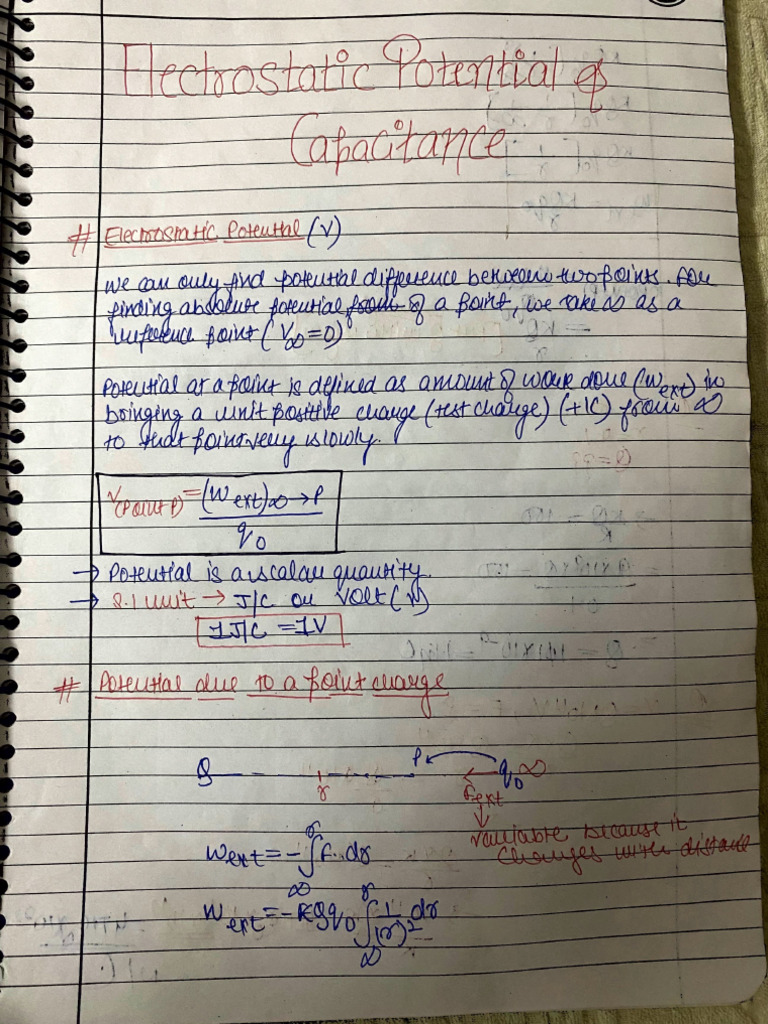 Electrostatic Potential &
Capacitance
# Electrostatic Potential (V)
We can only find potential difference between two points. For
finding absolute potential from of a point, we take ∞ as a
reference point (V∞=0)
Potential at a point is defined as amount of work done (Wext) in
bringing a unit positive charge (test charge) (+1C) from ∞
to that point very slowly.
V(Point P) = (Wext)∞→P
q0
→ Potential is a scalar quantity.
→ S.I unit → J/C or Volt(V)
1J/C = 1V
# Potential due to a point charge
Q P q0 ∞
r Fext
Variable because it
changes with distance
Wext = -∫∞^r F. dr
Wext = -KQq0 ∫∞^r 1/(r)² dr